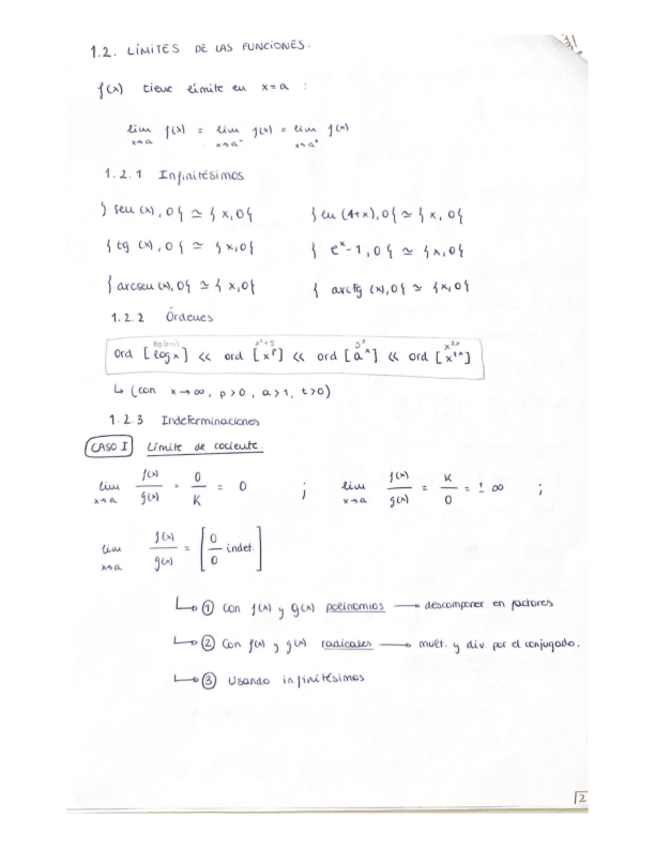 1.2. LÍMITES DE LAS FUNCIONES.
f(x) tiene límite en x=a :
lim x→a f(x) = lim x→a⁻ f(x) = lim x→a⁺ f(x)
1.2.1 Infinitésimos
{ sen (x), 0 { ≃ { x, 0 { { ln (1+x), 0 { ≃ { x, 0 {
{ tg (x), 0 { ≃ { x, 0 { { eˣ-1, 0 { ≃ { x, 0 {
{ arcsen (x), 0 { ≃ { x, 0 { { arctg (x), 0 { ≃ { x, 0 {
1.2.2 Órdenes
ord [log x] << ord [xᵖ] << ord [aˣ] << ord [xᵗˣ]
↳ (con x→∞, p>0, a>1, t>0)
1.2.3 Indeterminaciones
CASO I Límite de cociente.
lim x→a f(x)/g(x) = 0/K = 0 ; lim x→a f(x)/g(x) = K/0 = ± ∞ ;
lim x→a f(x)/g(x) = [0/0 indet.]
↳ ① Con f(x) y g(x) polinomios → descomponer en factores
↳ ② Con f(x) y g(x) radicales → mult. y div. por el conjugado.
↳ ③ Usando infinitésimos
2